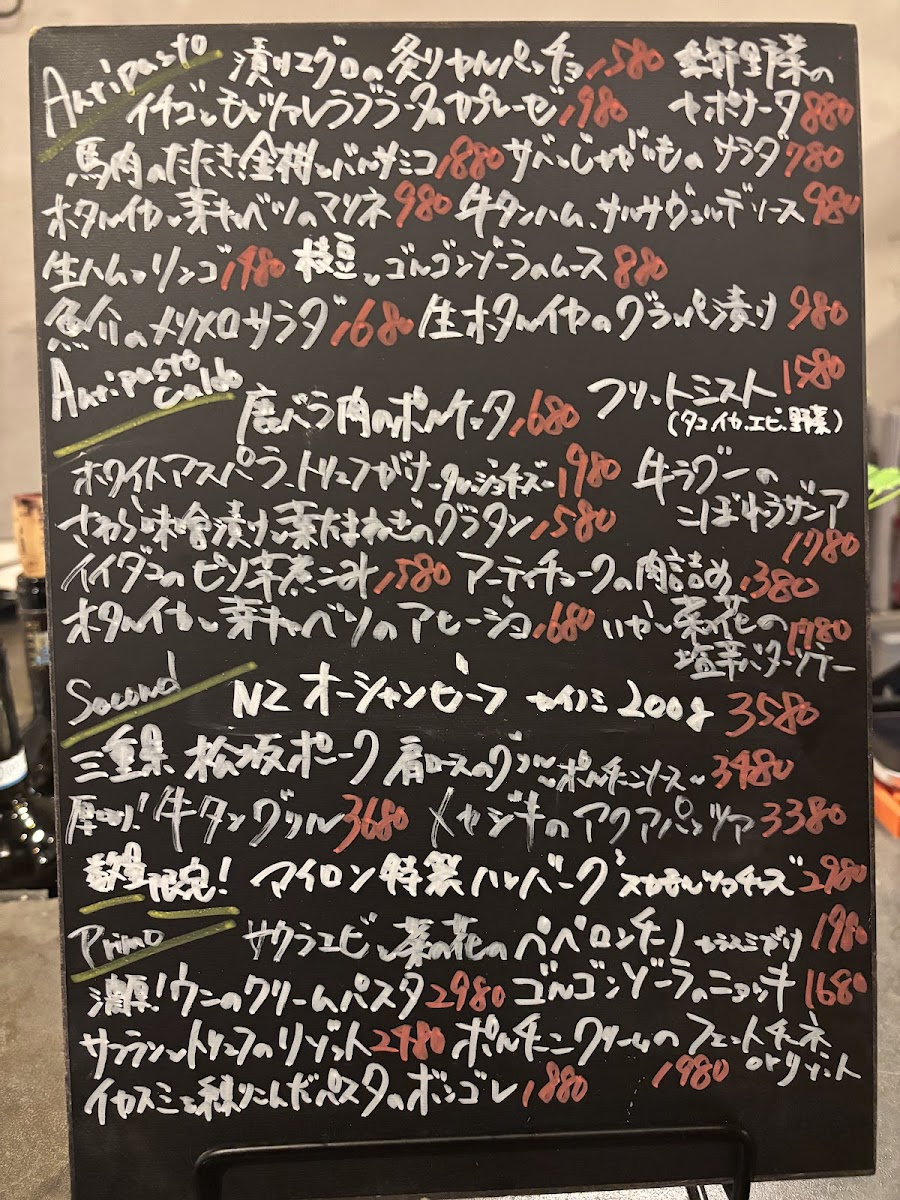 Antipasto 漬けマグロの炙りカルパッチョ 1580 季節野菜の
イチゴとモッツァレラブラータのカプレーゼ 1980 カポナータ 880
馬肉のたたき 金柑とバルサミコ 1880 サバとじゃがいものサラダ 780
ホタルイカと菜キャベツのマリネ 980 牛タンハム、サルサヴェルデソース 980
生ハムとリンゴ 1480 枝豆とゴルゴンゾーラのムース 880
魚介のメリメロサラダ 1680 生ホタルイカのグラッパ漬け 980
Antipasto Caldo
豚バラ肉のポルケッタ 1680 フリットミスト 1580
(タコ、イカ、エビ、野菜)
ホワイトアスパラ、トリュフがけ 1980 牛ラグーの
さわら味噌漬けと葉たまねぎのグラタン 1580 こぼれラザニア
1780
イイダコのピリ辛煮こみ 1580 アーティチョークの肉詰め 1380
ホタルイカと菜キャベツのアヒージョ 1680 いかと菜の花の 1780
塩辛バターソテー
Second NZ オーシャンビーフ カイノミ 200g 3580
三重県 松坂ポーク 肩ロースのグリル ~ポルチーニソース~ 3480
厚切り! 牛タングリル 3680 メカジキのアクアパッツァ 3380
数量限定! マイロン特製ハンバーグ 2980
Primo サクラエビと菜の花のペペロンチーノ カラスミがけ 1980
濃厚!ウニのクリームパスタ 2980 ゴルゴンゾーラのニョッキ 1680
サフランとトリュフのリゾット 2480 ポルチーニクリームのフェットチーネ
1980 orリゾット
イカスミを練りこんだパスタのボンゴレ 1880